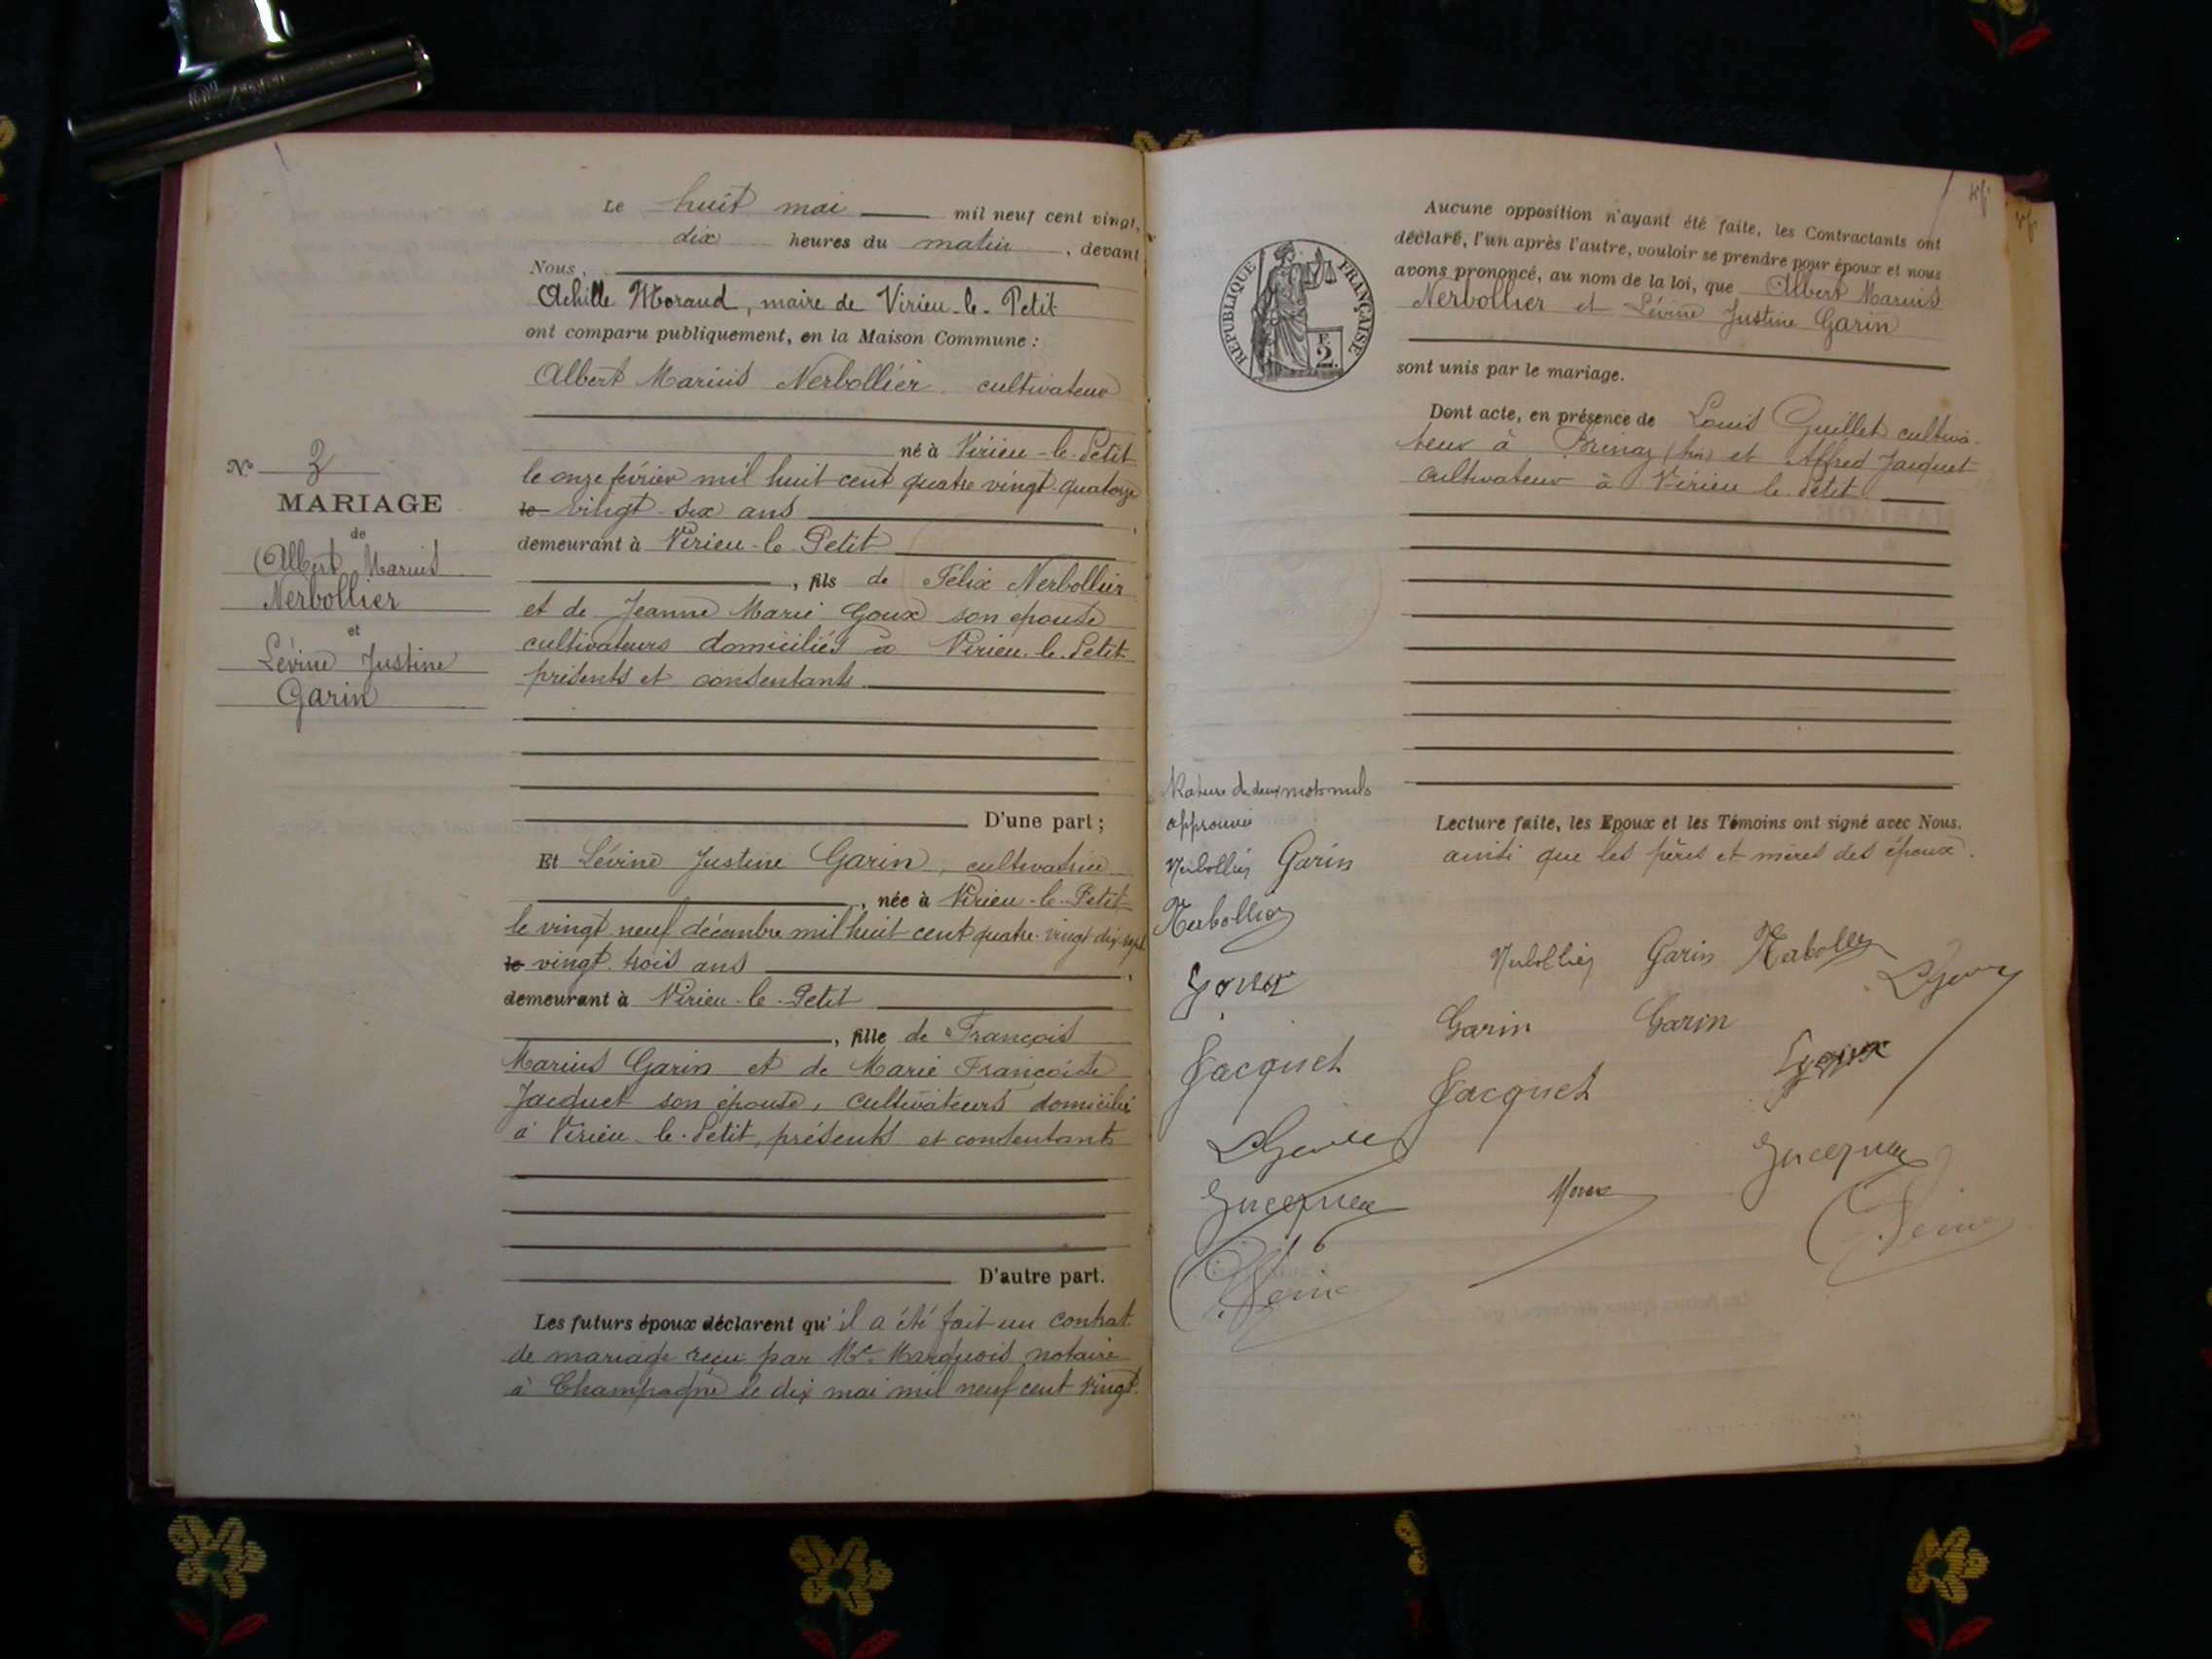 Le huit mai mil neuf cent vingt,
dix heures du matin, devant
Nous,
Achille Morand, maire de Virieu-le-Petit
ont comparu publiquement, en la Maison Commune :
Albert Marius Nerbollier cultivateur
né à Virieu-le-Petit
le onze février mil huit cent quatre vingt quatorze
le vingt six ans
demeurant à Virieu-le-Petit
, fils de Félix Nerbollier
et de Jeanne Marie Goux son épouse
cultivateurs domiciliés à Virieu-le-Petit
présents et consentants
D'une part ;
Et Lévine Justine Garin, cultivatrice
, née à Virieu-le-Petit
le vingt neuf décembre mil huit cent quatre-vingt dix-sept
le vingt trois ans
demeurant à Virieu-le-Petit
, fille de François
Marius Garin et de Marie Françoise
Jacquet son épouse, cultivateurs domiciliés
à Virieu-le-Petit, présents et consentants
D'autre part.
Les futurs époux déclarent qu'il a été fait un contrat
de mariage reçu par Me Marquois notaire
à Champagne le dix mai mil neuf cent vingt.
No 3
MARIAGE
de
Albert Marius
Nerbollier
et
Lévine Justine
Garin
RÉPUBLIQUE FRANÇAISE
F.
2.
Aucune opposition n'ayant été faite, les Contractants ont
déclaré, l'un après l'autre, vouloir se prendre pour époux et nous
avons prononcé, au nom de la loi, que Albert Marius
Nerbollier et Lévine Justine Garin
sont unis par le mariage.
Dont acte, en présence de Louis Guillet cultiva-
teur à Brénaz (Ain) et Alfred Jacquet
cultivateur à Virieu le Petit
Lecture faite, les Epoux et les Témoins ont signé avec Nous.
ainsi que les pères et mères des époux.
Rature de deux mots nuls
approuvée
Nerbollier Garin
Nerbollier
Goux
Jacquet
Nerbollier Garin Nerbollier
Garin Garin
Goux
Jacquet